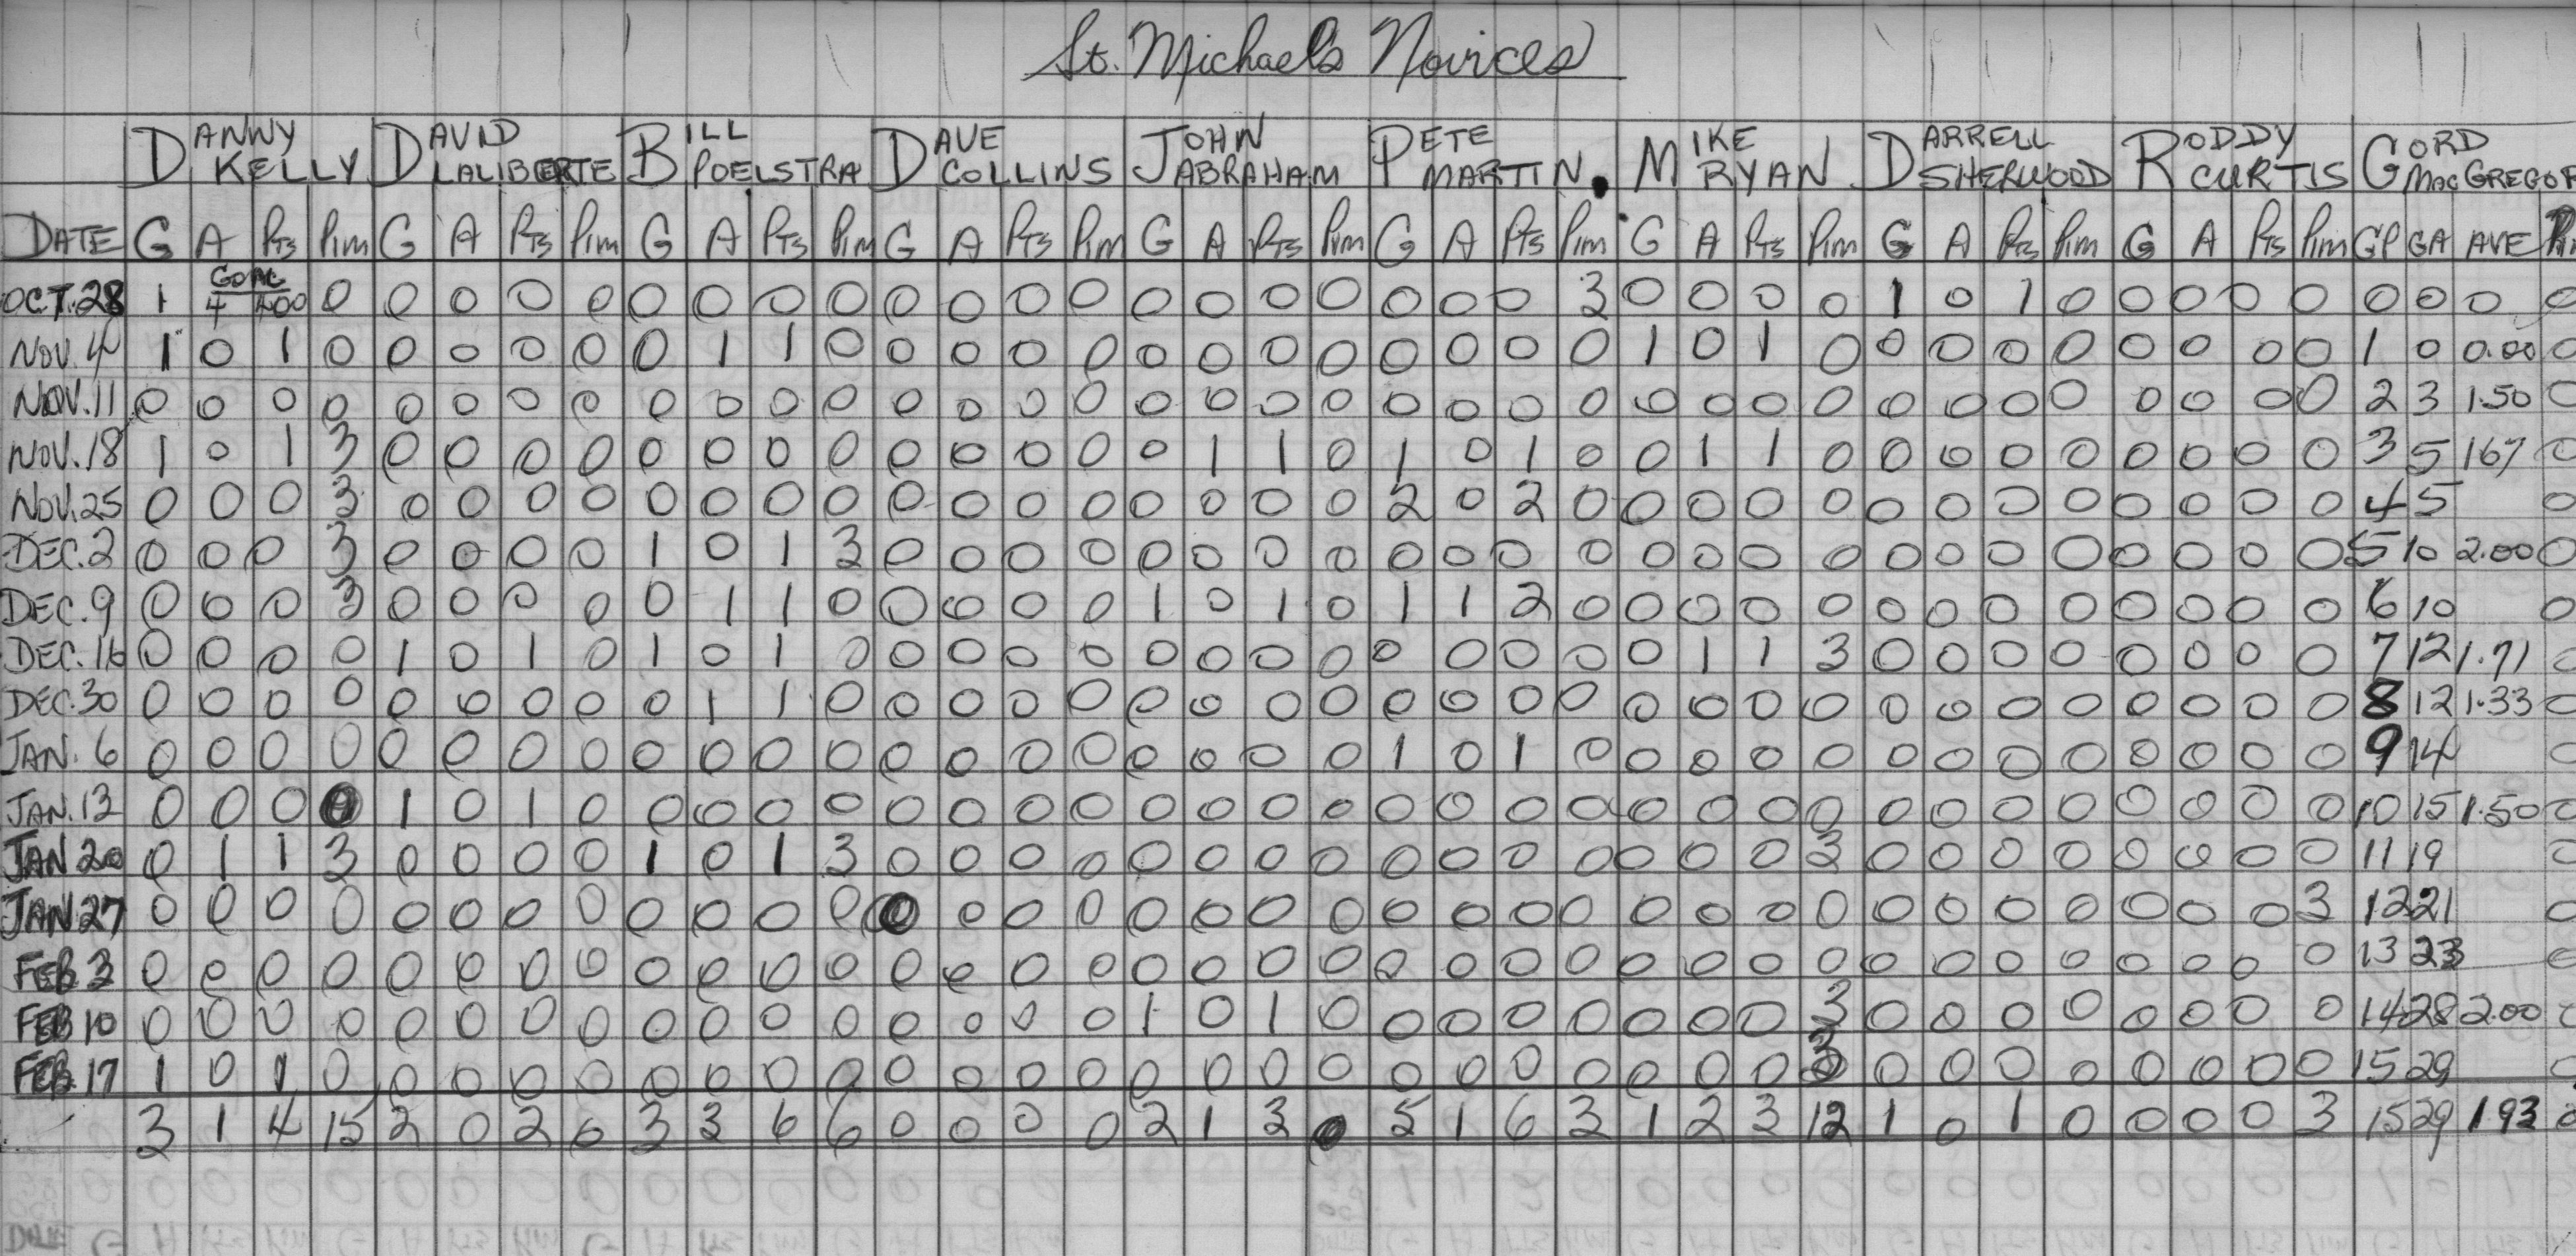 St. Michael's Novices
DANNY KELLY DAVID LALIBERTE BILL POELSTRA DAVE COLLINS JOHN ABRAHAM PETE MARTIN. MIKE RYAN DARRELL SHERWOOD RODDY CURTIS GORD MACGREGOR
DATE G A Pts Pim G A Pts Pim G A Pts Pim G A Pts Pim G A Pts Pim G A Pts Pim G A Pts Pim G A Pts Pim G A Pts Pim GP GA AVE
OCT.28 1 GOAL 4 4.00 0 0 0 0 0 0 0 0 0 0 0 0 0 0 0 0 0 0 0 0 3 0 0 0 0 1 0 1 0 0 0 0 0 0 0 0 0
NOV.4 1 0 1 0 0 0 0 0 0 1 1 0 0 0 0 0 0 0 0 0 0 0 0 0 1 0 1 0 0 0 0 0 0 0 0 0 1 0 0.00 0
NOV.11 0 0 0 0 0 0 0 0 0 0 0 0 0 0 0 0 0 0 0 0 0 0 0 0 0 0 0 0 0 0 0 0 0 0 0 0 2 3 1.50 0
NOV.18 1 0 1 3 0 0 0 0 0 0 0 0 0 0 0 0 0 1 1 0 1 0 1 0 0 1 1 0 0 0 0 0 0 0 0 0 3 5 167 0
NOV.25 0 0 0 3 0 0 0 0 0 0 0 0 0 0 0 0 0 0 0 0 2 0 2 0 0 0 0 0 0 0 0 0 0 0 0 0 4 5 0
DEC.2 0 0 0 3 0 0 0 0 1 0 1 3 0 0 0 0 0 0 0 0 0 0 0 0 0 0 0 0 0 0 0 0 0 0 0 0 5 10 2.00 0
DEC.9 0 0 0 3 0 0 0 0 0 1 1 0 0 0 0 0 1 0 1 0 1 1 2 0 0 0 0 0 0 0 0 0 0 0 0 0 6 10 0
DEC.16 0 0 0 0 1 0 1 0 1 0 1 0 0 0 0 0 0 0 0 0 0 0 0 0 0 1 1 3 0 0 0 0 0 0 0 0 7 12 1.71 0
DEC.30 0 0 0 0 0 0 0 0 0 1 1 0 0 0 0 0 0 0 0 0 0 0 0 0 0 0 0 0 0 0 0 0 0 0 0 0 8 12 1.33 0
JAN. 6 0 0 0 0 0 0 0 0 0 0 0 0 0 0 0 0 0 0 0 0 1 0 1 0 0 0 0 0 0 0 0 0 0 0 0 0 9 14 0
JAN.13 0 0 0 0 1 0 1 0 0 0 0 0 0 0 0 0 0 0 0 0 0 0 0 0 0 0 0 0 0 0 0 0 0 0 0 0 10 15 1.50 0
JAN 20 0 1 1 3 0 0 0 0 1 0 1 3 0 0 0 0 0 0 0 0 0 0 0 0 0 0 0 3 0 0 0 0 0 0 0 0 11 19 0
JAN 27 0 0 0 0 0 0 0 0 0 0 0 0 0 0 0 0 0 0 0 0 0 0 0 0 0 0 0 0 0 0 0 0 0 0 0 3 12 21 0
FEB 3 0 0 0 0 0 0 0 0 0 0 0 0 0 0 0 0 0 0 0 0 0 0 0 0 0 0 0 0 0 0 0 0 0 0 0 0 13 23 0
FEB 10 0 0 0 0 0 0 0 0 0 0 0 0 0 0 0 0 1 0 1 0 0 0 0 0 0 0 0 3 0 0 0 0 0 0 0 0 14 28 2.00 0
FEB.17 1 0 1 0 0 0 0 0 0 0 0 0 0 0 0 0 0 0 0 0 0 0 0 0 0 0 0 3 0 0 0 0 0 0 0 0 15 29 0
3 1 4 15 2 0 2 0 3 3 6 6 0 0 0 0 2 1 3 0 5 1 6 3 1 2 3 12 1 0 1 0 0 0 0 3 15 29 1.93 0